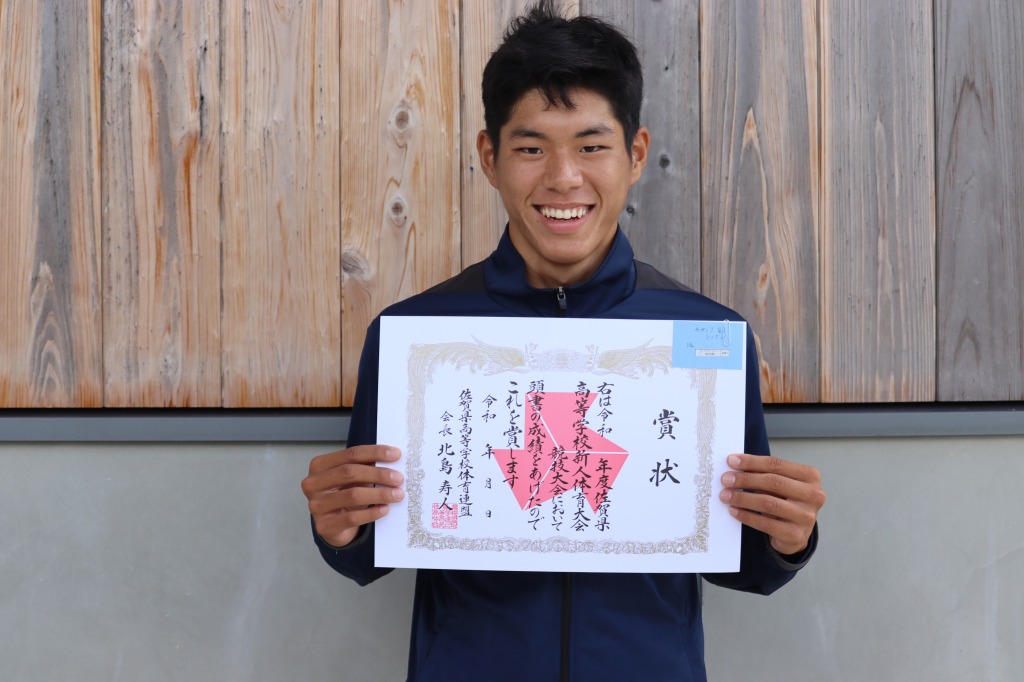 賞状
右は令和 年度佐賀県
高等学校新人体育大会
競技大会において
頭書の成績をあげたので
これを賞します
令和 年 月 日
佐賀県高等学校体育連盟
会長 北島寿人